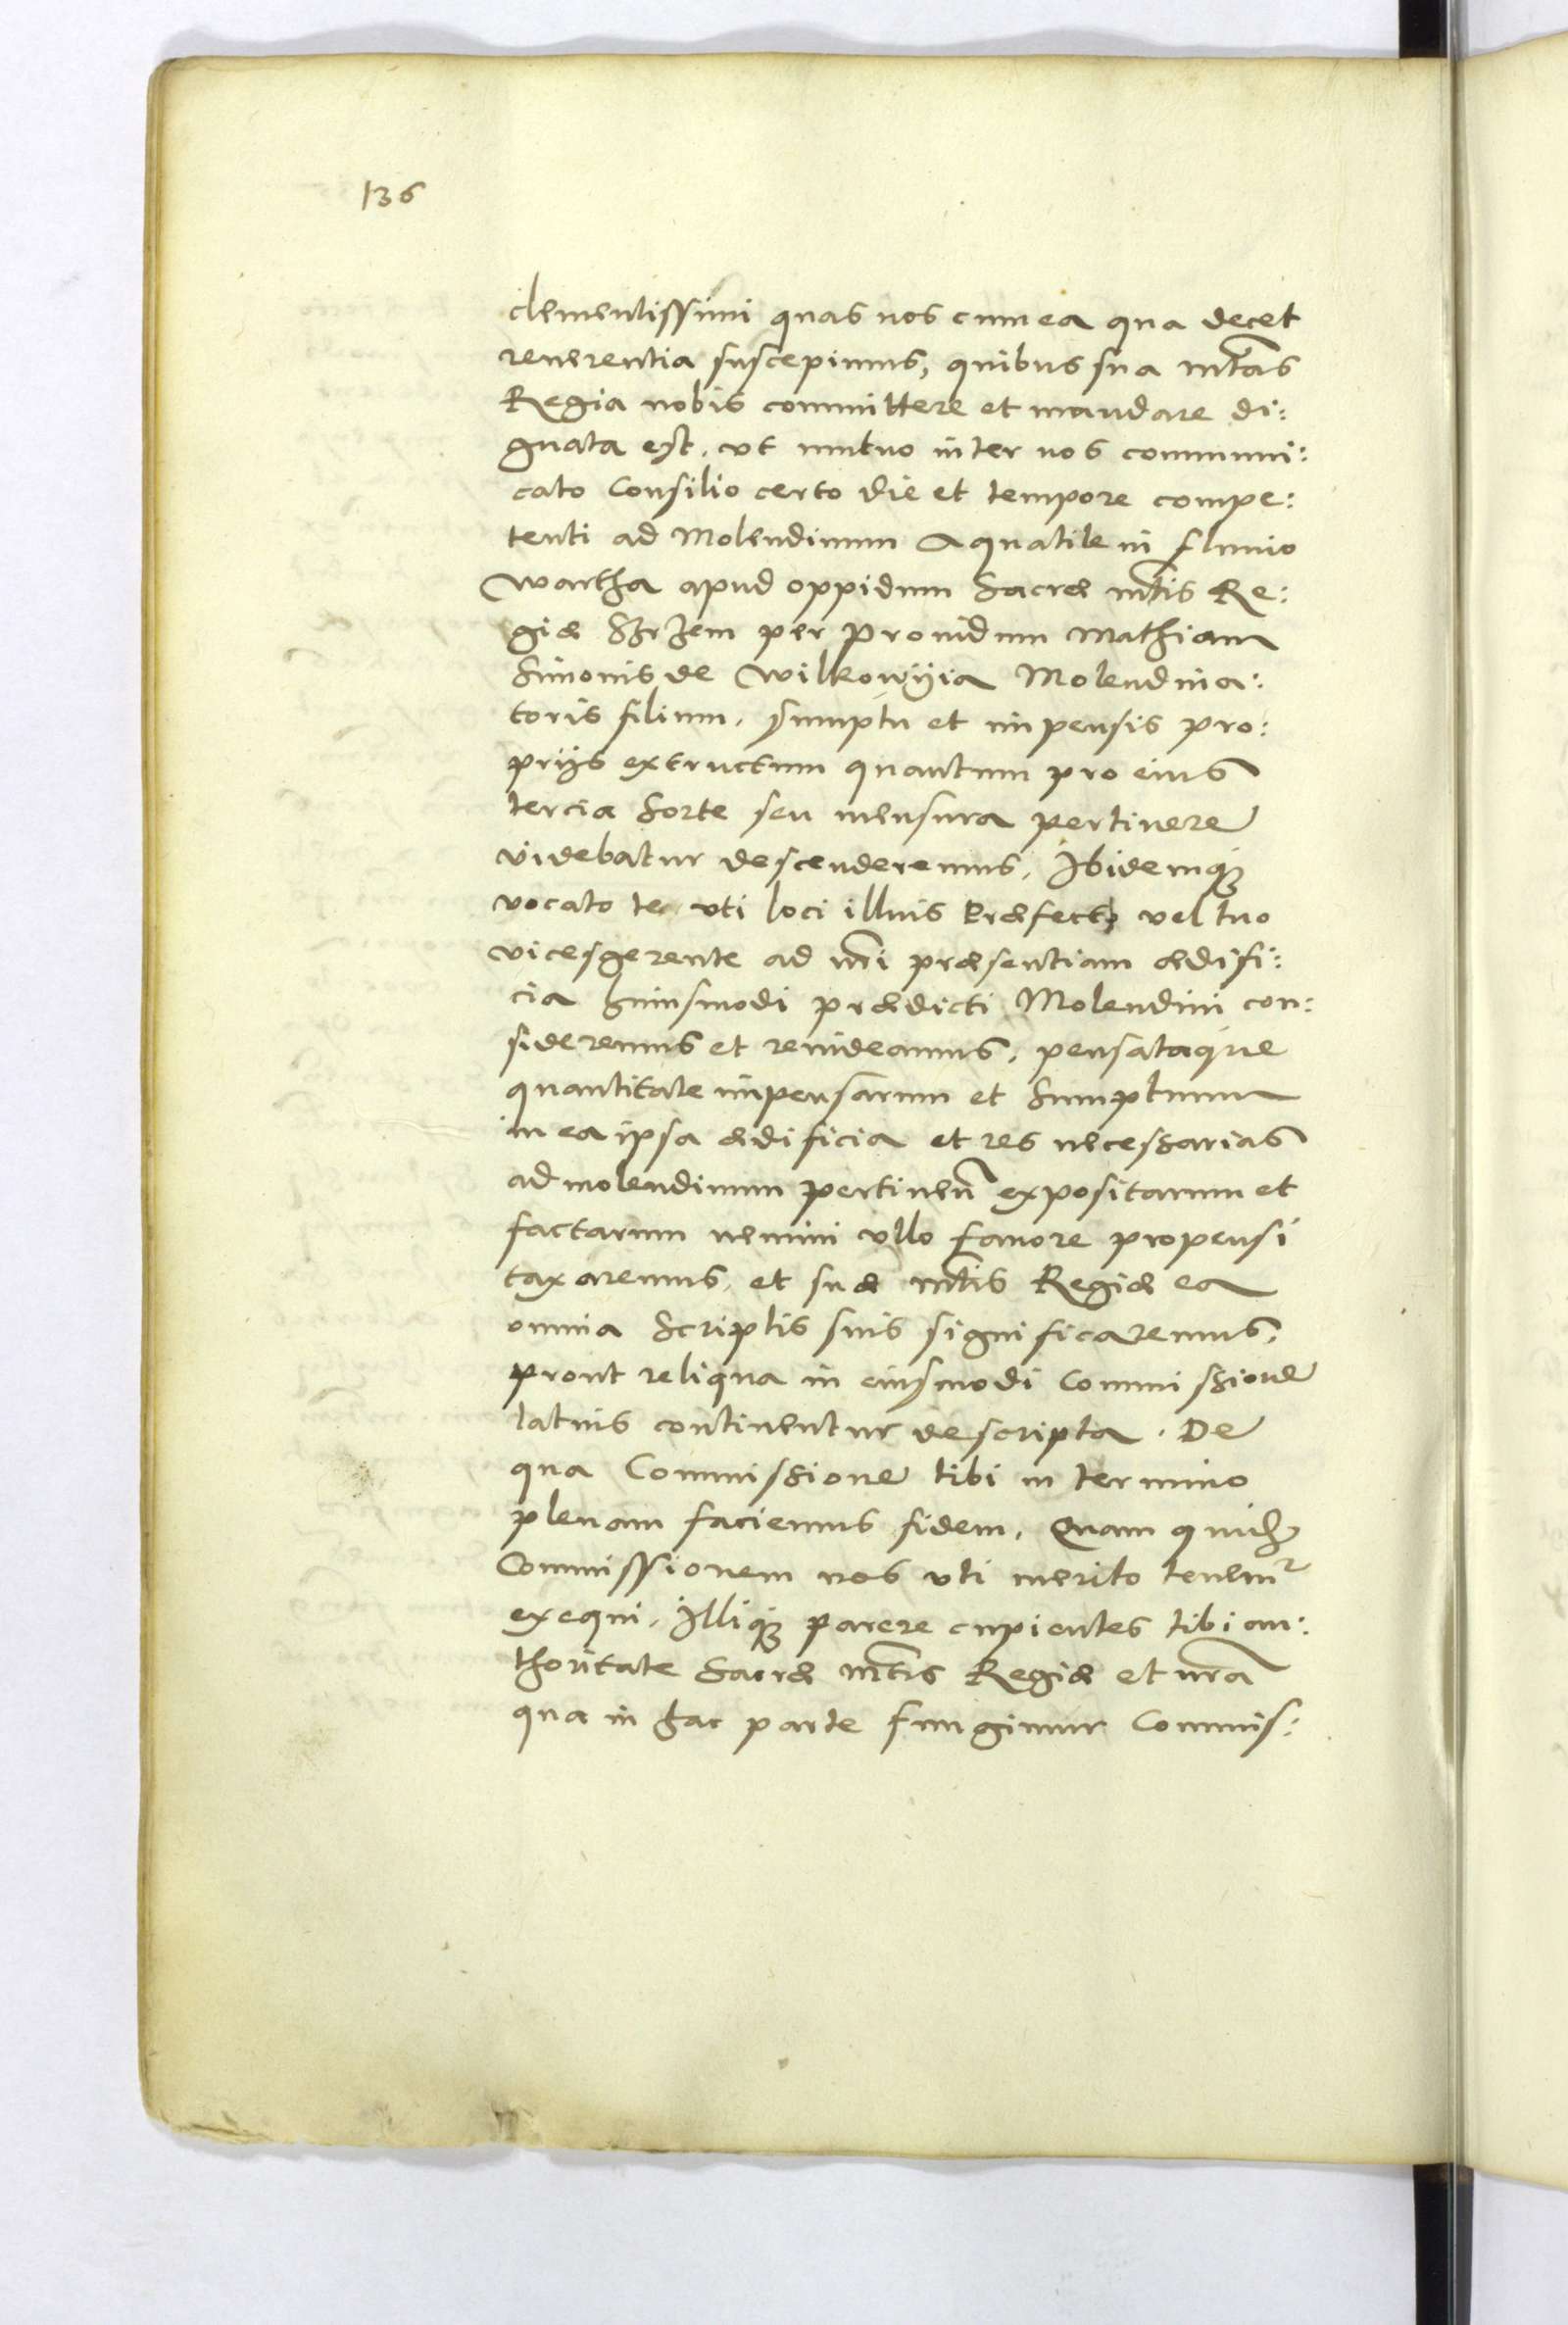 136
clementissimi quas nos cum ea qua decet
reuerentia suscepimus, quibus sua mtas
Regia nobis committere et mandare di:
gnata est. vt mutuo inter nos communi:
cato Consilio certo die et tempore compe:
tenti ad Molendinum Aquatile in fluuio
Wartha apud oppidum Sacræ mtis Re:
giæ Srzem per prouidum Mathiam
Simonis de Wilkowyia Molendina:
toris filium, sumptu et impensis pro:
prijs extructum quantum pro eius
tercia Sorte seu mensura pertinere
videbatur descenderemus, Ibidemq
vocato te vti loci illius Præfecto vel tuo
vicesgerente ad nri præsentiam ædifi:
cia huiusmodi prædicti Molendini con:
sideremus et reuideamus, pensataque
quantitate impensarum et Sumptuum
in ea ipsa ædificia et res necessarias
ad molendinum pertinen expositarum et
factarum nemini vllo fauore propensi
taxaremus, et suæ mtis Regiæ ea
omnia Scriptis suis significaremus,
prout reliqua in eiusmodi Commissione
latius continentur descripta. De
qua Commissione tibi in termino
plenam faciemus fidem, Quam quid
Commissionem nos vti merito tenemr
exequi, Illiq parere cupientes tibi au:
thoritate Sacræ mtis Regiæ et nra
qua in hac parte fungimur Commis: